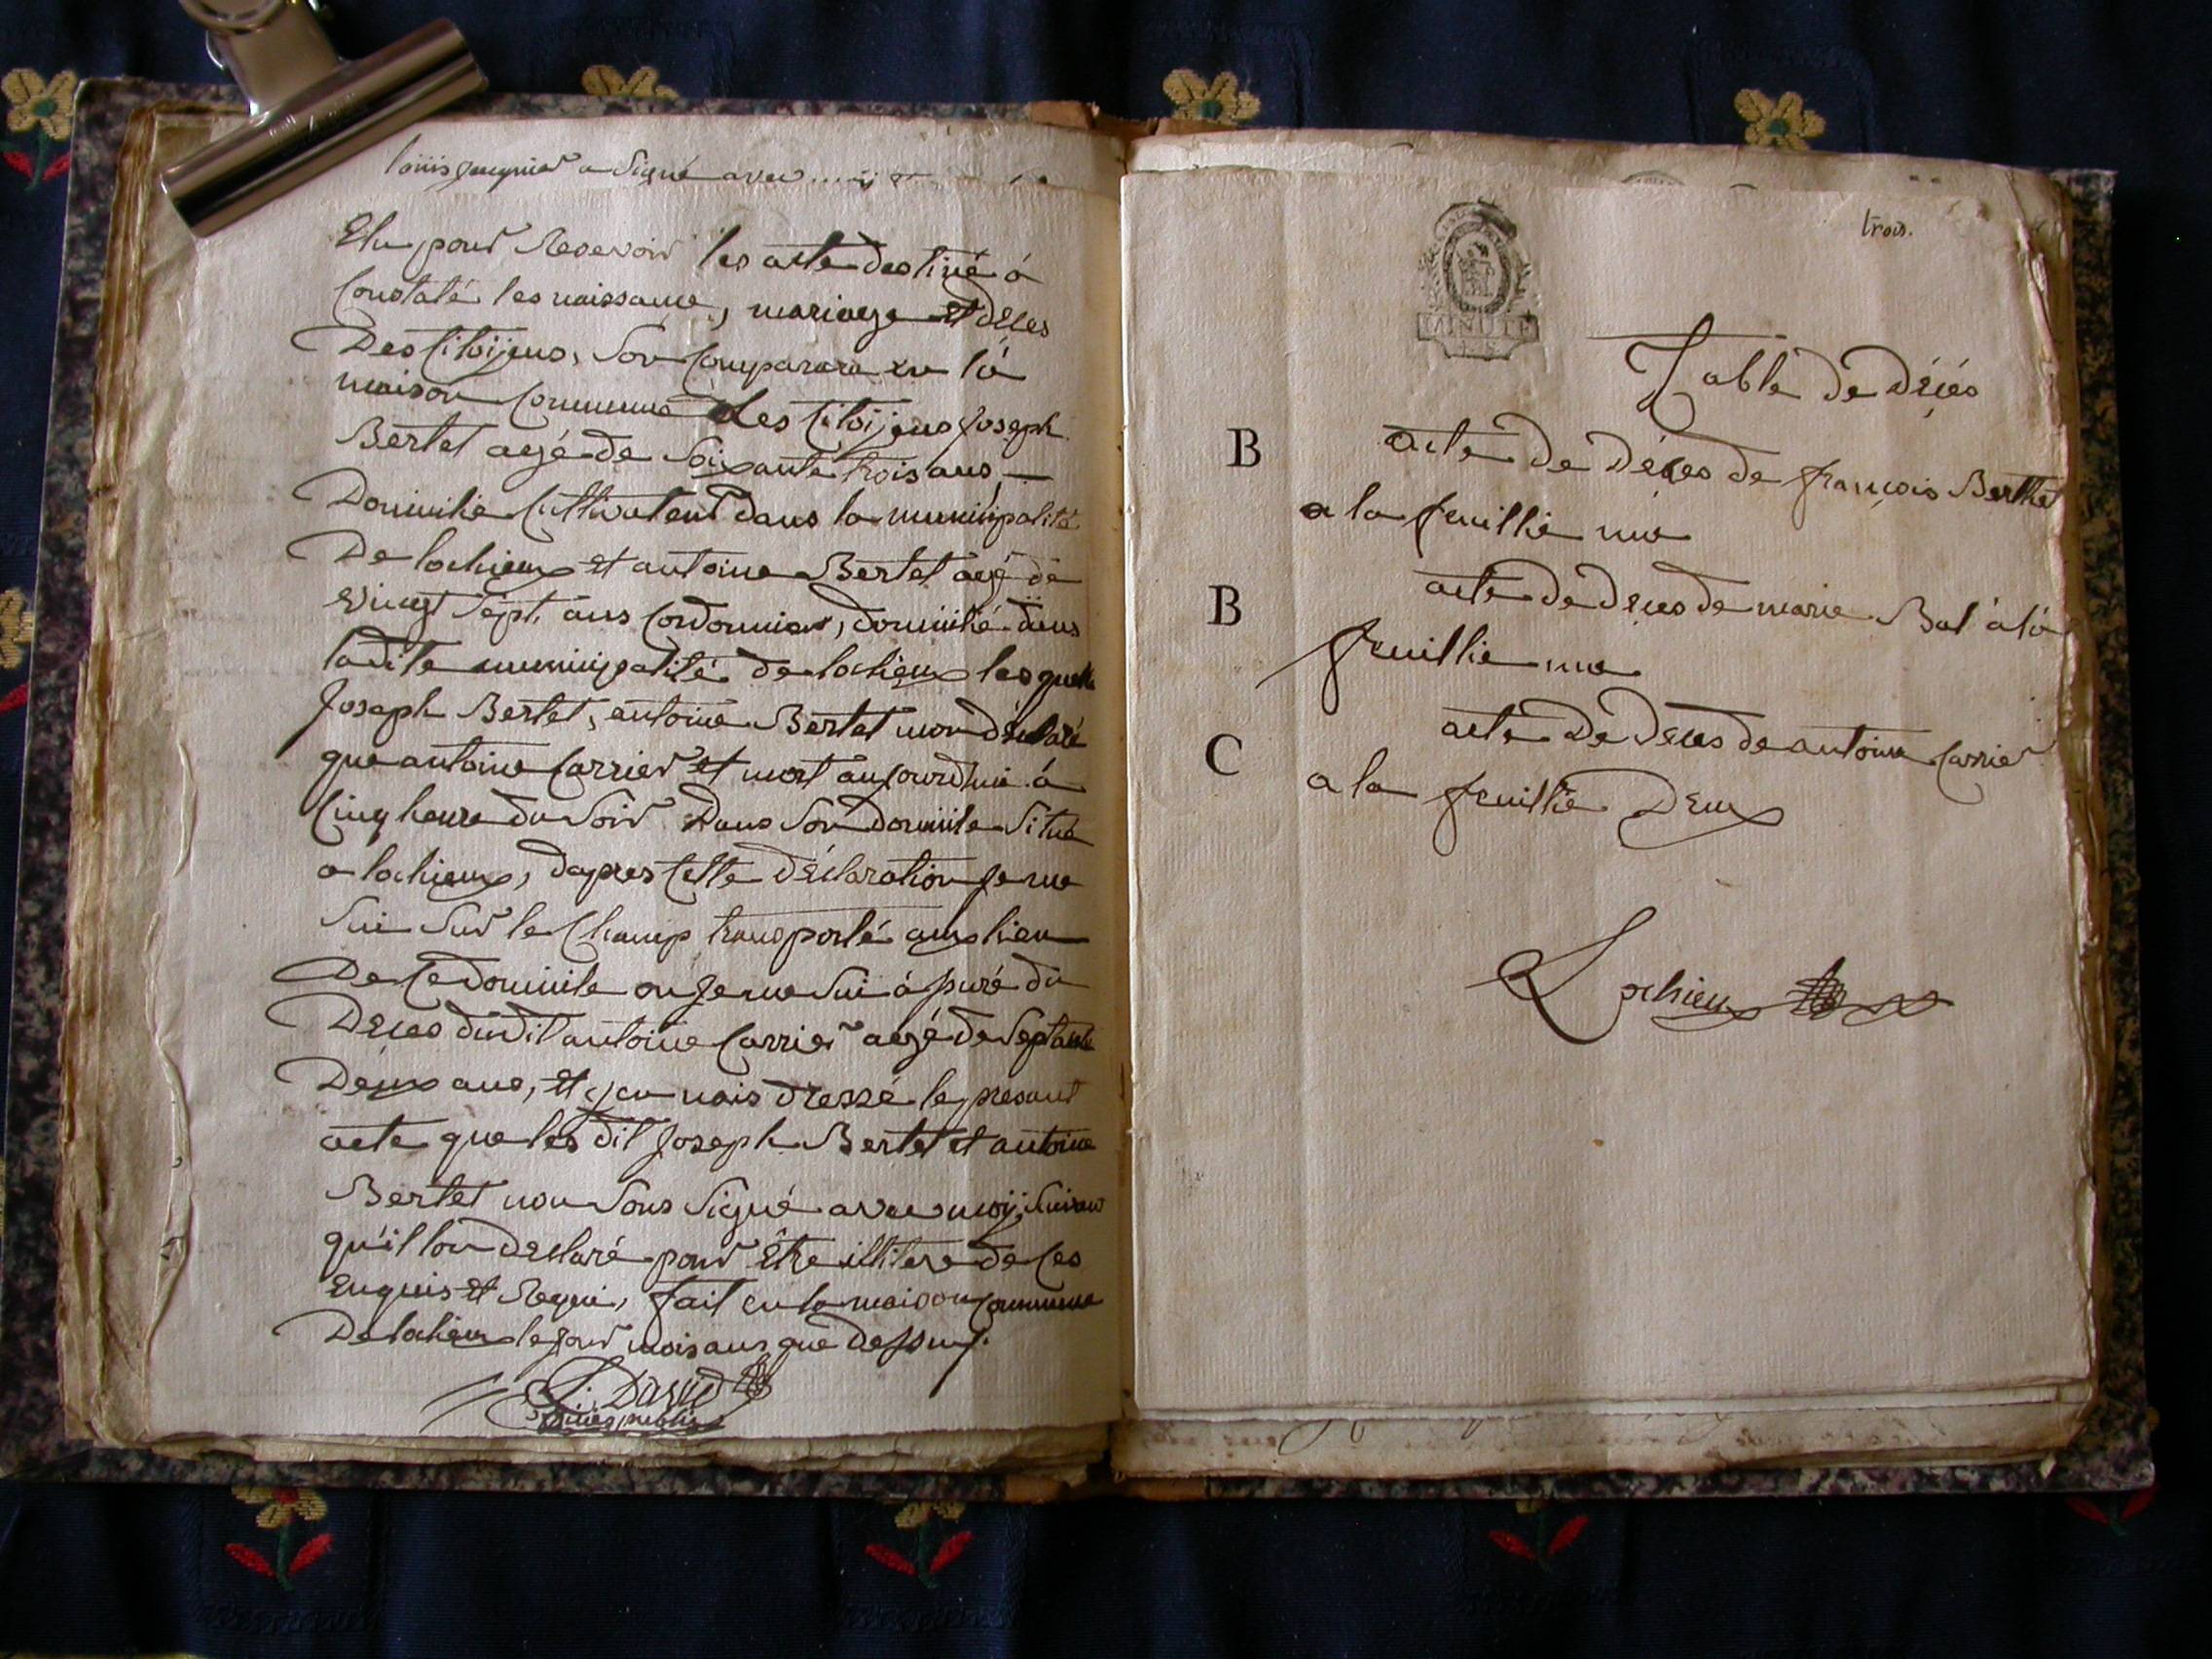 louis a signé avec
Elu pour Recevoir les acte destiné á
Constaté les naissance, mariage et déces
Des Citoijens, Son Comparara en lá
maison Commune Les Citoijens Joseph
Bertet aegé de Soixante trois ans
Domicilie Cultivateur dans la municipalité
De lochieux et antoine Bertet aegé de
Vingt Sept ans Cordonnier, domicilié dans
ladite municipalité de lochieux lesquels
Joseph Bertet, antoine Bertet mon déclaré
que antoine Carrier et mort aujourdhui á
Cinq heure du Soir Dans Son domicile Situé
a lochieux, dapres Cette déclaration Je me
Sui Sur le Champ transporté aux lieu
De Ce domicile ou Je me Sui ásuré du
Deces dudit antoine Carrier aegé de Septante
Deux ans, et jen nais dressé le présant
acte que les dit Joseph Bertet et antoine
Bertet non Sous Signé avec moij, Suivant
qu'il lon déclaré pour être illitere de Ces
Enquis et Requi, fait en la maison Commune
De lochieux le jour mois ans que dessus.
David
officier public
trois.
MINUTE
Table de Déces
B acte De Déces de françois Berthet
a la feuillie une
B acte de deces de marie Bal á la
feuillie une
C acte De Deces de antoine Carrier
a la feuillie Deux
Lochieux